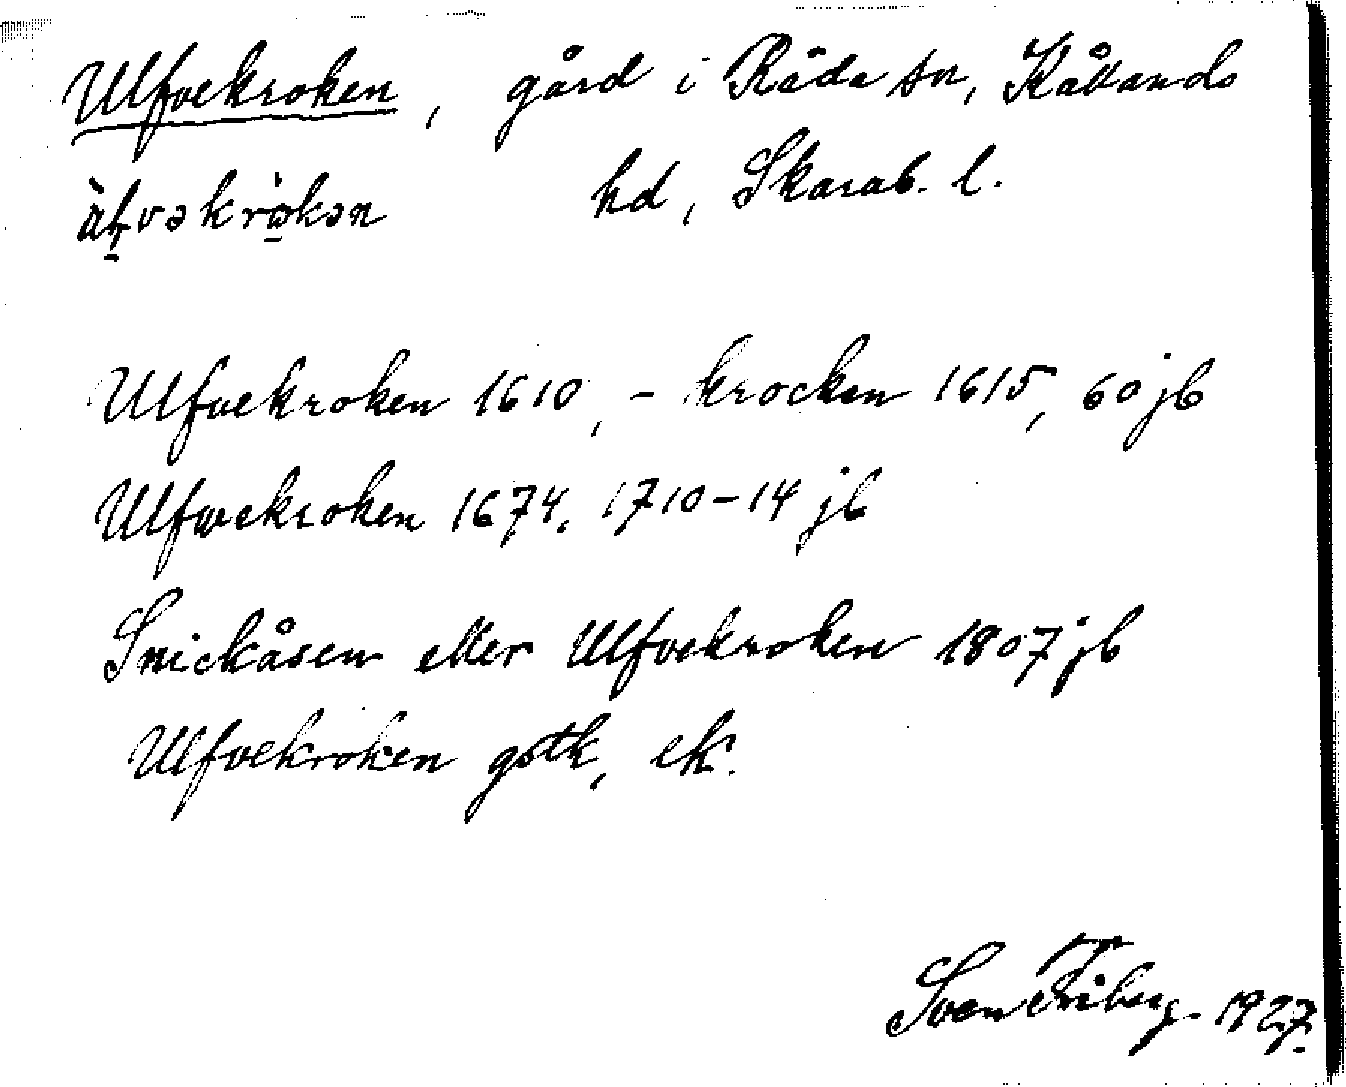 Ulfvekroken, gård i Råda sn, Kållands
hd, Skarab. l.
Ulfvekroken 1610, - krocken 1615, 60 jb
Ulfwekroken 1674, 1710-14 jb
Snickåsen eller Ulfvekroken 1807 jb
Ulfvekroken gstk, ek.
Sven Friberg 1927.